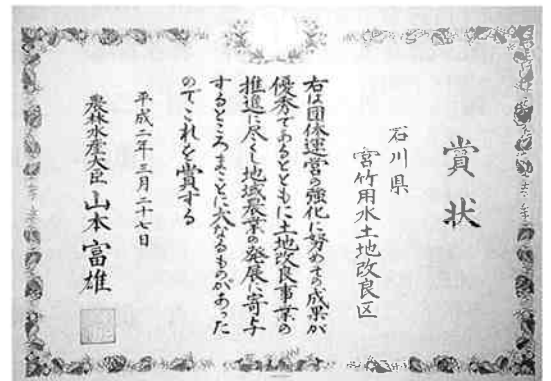 賞状
石川県
宮竹用水土地改良区
右は団体運営の強化に努めその成果が
優秀であるとともに土地改良事業の
推進に尽くし地域農業の発展に寄与
するところまことに大なるものがあった
のでこれを賞する
平成二年三月二十七日
農林水産大臣 山本富雄